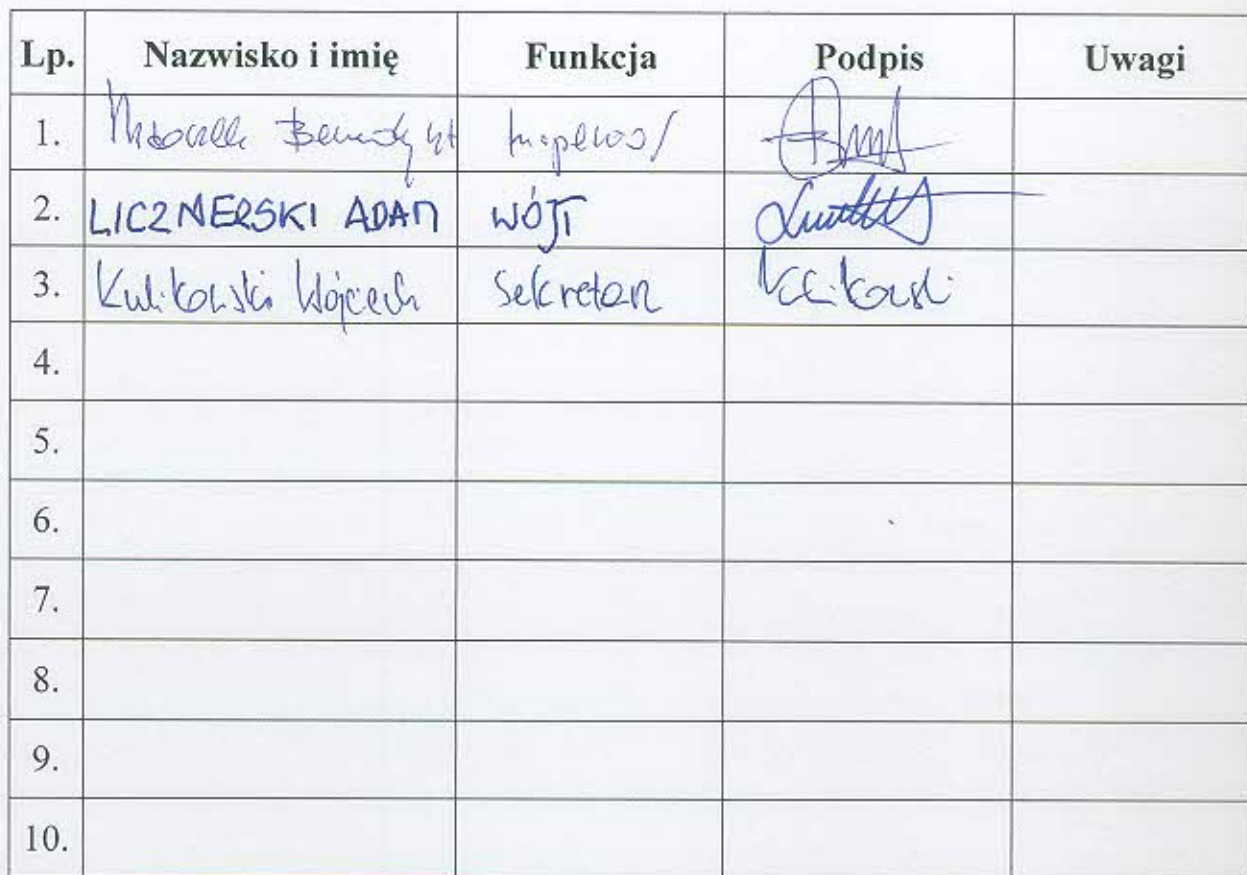 Lp. Nazwisko i imię Funkcja Podpis Uwagi
1.
2. LICZNERSKI ADAM WÓJT
3. Kulikowski Wojciech Sekretarz Kulikowski
4.
5.
6.
7.
8.
9.
10.